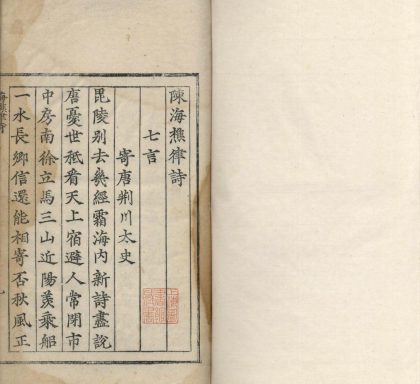 陳海樵律詩
七言
寄唐荆川太史
毘陵別去幾經霜海内新詩盡說
唐憂世秪看天上宿避人常閉市
中房南徐立馬三山近陽羨乘船
一水長鄉信還能相寄否秋風正